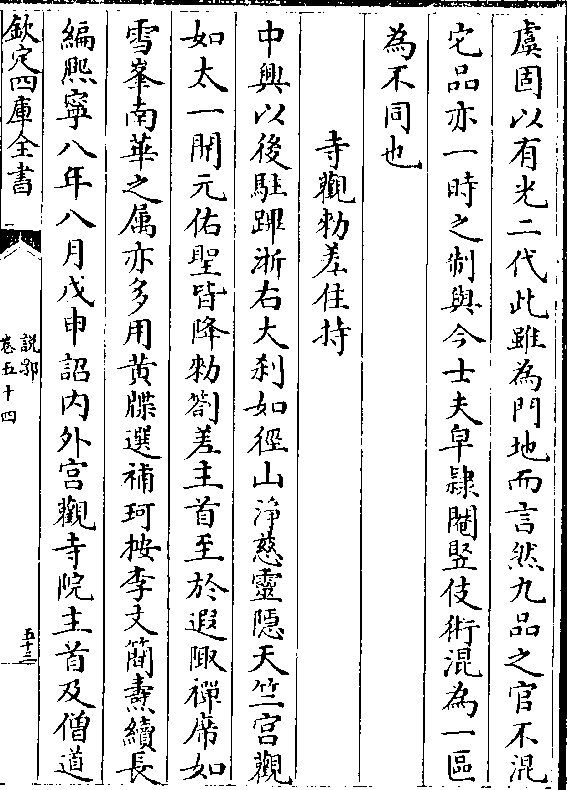 虞固以有光二代此雖為門地而言然九品之官不混
宅品亦一時之制與今士夫皁隷閹竪伎術混為一區
為不同也
寺觀勅差住持
中興以後駐蹕浙右大刹如徑山淨慈靈隱天竺宫觀
如太一開元佑聖皆降勅劄差主首至於遐陬禪席如
雪峯南華之属亦多用黄牒選補珂按李文簡燾續長
編熈寧八年八月戊申詔内外宫觀寺院主首及僧道
欽定四庫全書
説郛
卷五十四
五十三